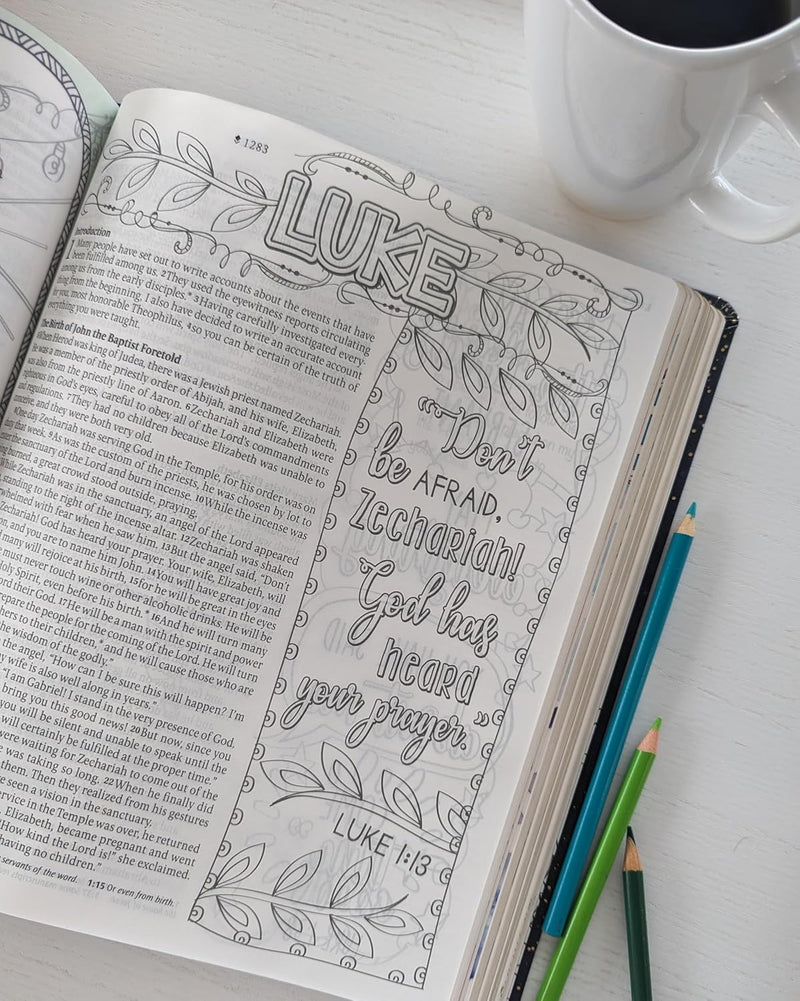 1283
LUKE
Introduction
1 Many people have set out to write accounts about the events that have
been fulfilled among us. 2They used the eyewitness reports circulating
among us from the early disciples.* 3Having carefully investigated every-
thing from the beginning, I also have decided to write an accurate account
for you, most honorable Theophilus, 4so you can be certain of the truth of
everything you were taught.
The Birth of John the Baptist Foretold
5When Herod was king of Judea, there was a Jewish priest named Zechariah.
He was a member of the priestly order of Abijah, and his wife, Elizabeth,
was also from the priestly line of Aaron. 6Zechariah and Elizabeth were
righteous in God's eyes, careful to obey all of the Lord's commandments
and regulations. 7They had no children because Elizabeth was unable to
conceive, and they were both very old.
8One day Zechariah was serving God in the Temple, for his order was on
duty that week. 9As was the custom of the priests, he was chosen by lot to
enter the sanctuary of the Lord and burn incense. 10While the incense was
being burned, a great crowd stood outside, praying.
While Zechariah was in the sanctuary, an angel of the Lord appeared
standing to the right of the incense altar. 12Zechariah was shaken
whelmed with fear when he saw him. 13But the angel said, "Don't
Zechariah! God has heard your prayer. Your wife, Elizabeth, will
on, and you are to name him John. 14You will have great joy and
many will rejoice at his birth, 15for he will be great in the eyes
must never touch wine or other alcoholic drinks. He will be
Holy Spirit, even before his birth.* 16And he will turn many
ord their God. 17He will be a man with the spirit and power
repare the people for the coming of the Lord. He will turn
thers to their children,* and he will cause those who are
the wisdom of the godly."
the angel, "How can I be sure this will happen? I'm
y wife is also well along in years."
"I am Gabriel! I stand in the very presence of God.
bring you this good news! 20But now, since you
you will be silent and unable to speak until the
will certainly be fulfilled at the proper time."
were waiting for Zechariah to come out of the
was taking so long. 22When he finally did
them. Then they realized from his gestures
e seen a vision in the sanctuary.
ervice in the Temple was over, he returned
Elizabeth, became pregnant and went
"How kind the Lord is!" she exclaimed.
having no children."
servants of the word. 1:15 Or even from birth.
"Don't
be AFRAID,
Zechariah!
God has
heard
your prayer."
LUKE 1:13